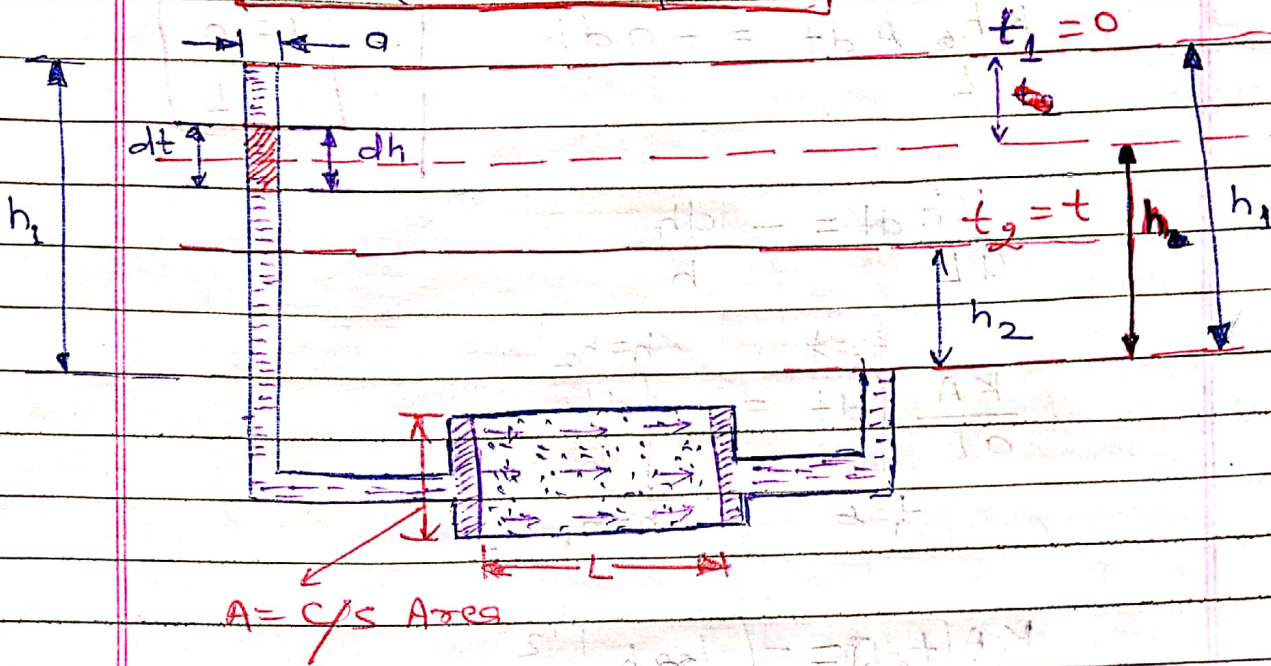 t₁ = 0
a
dt
dh
h₁
t₂ = t
h
h₁
h₂
L
A = C/S Area